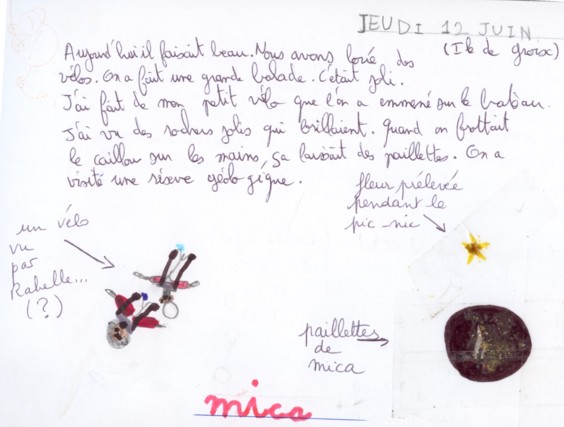 JEUDI 12 JUIN
(Ile de groix)
Aujourd'hui il faisait beau. Nous avons loué des
vélos. On a fait une grande balade. C'était joli.
J'ai fait de mon petit vélo que l'on a emmené sur le bateau.
J'ai vu des rochers jolis qui brillaient. Quand on frottait
le caillou sur les mains, ça faisait des paillettes. On a
visité une réserve géologique.
fleur prélevée
pendant le
pic-nic
un vélo
vu
par
(?)
paillettes
de
mica
mica